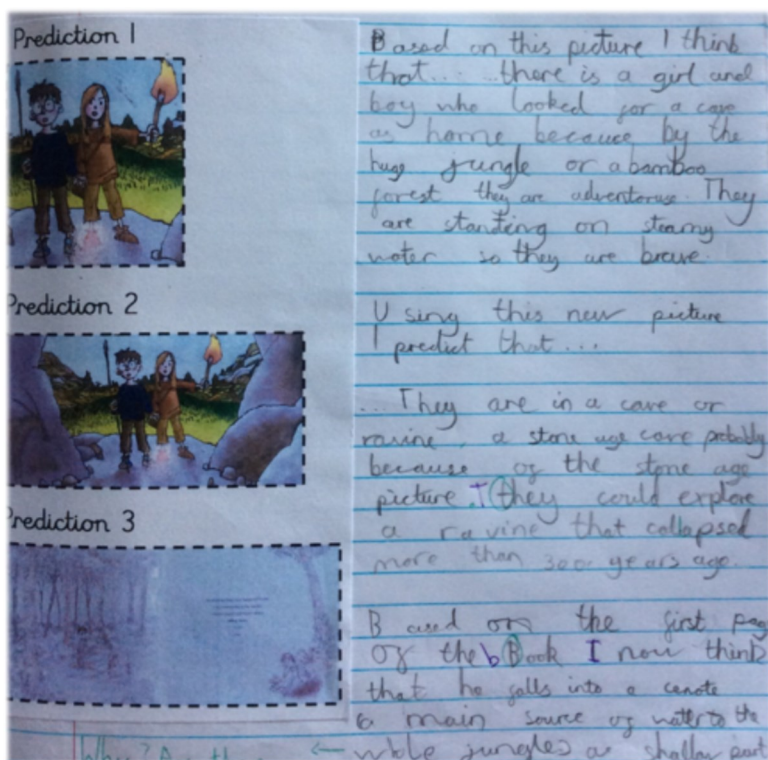 Prediction 1
Based on this picture I think
that... ...there is a girl and
boy who looked for a cave
as home because by the
huge jungle or a bamboo
forest they are adventeruse. They
are standing on steamy
water so they are brave.
Prediction 2
Using this new picture
I predict that...
...They are in a cave or
ravine, a stone age cave probably
because of the stone age
picture. T they could explore
a ravine that collapsed
more than 300 years age.
Prediction 3
Based on the first pag
of the b Book I now think
that he falls into a cenote
a main source of water to the
whole jungles a shallow part
Why?